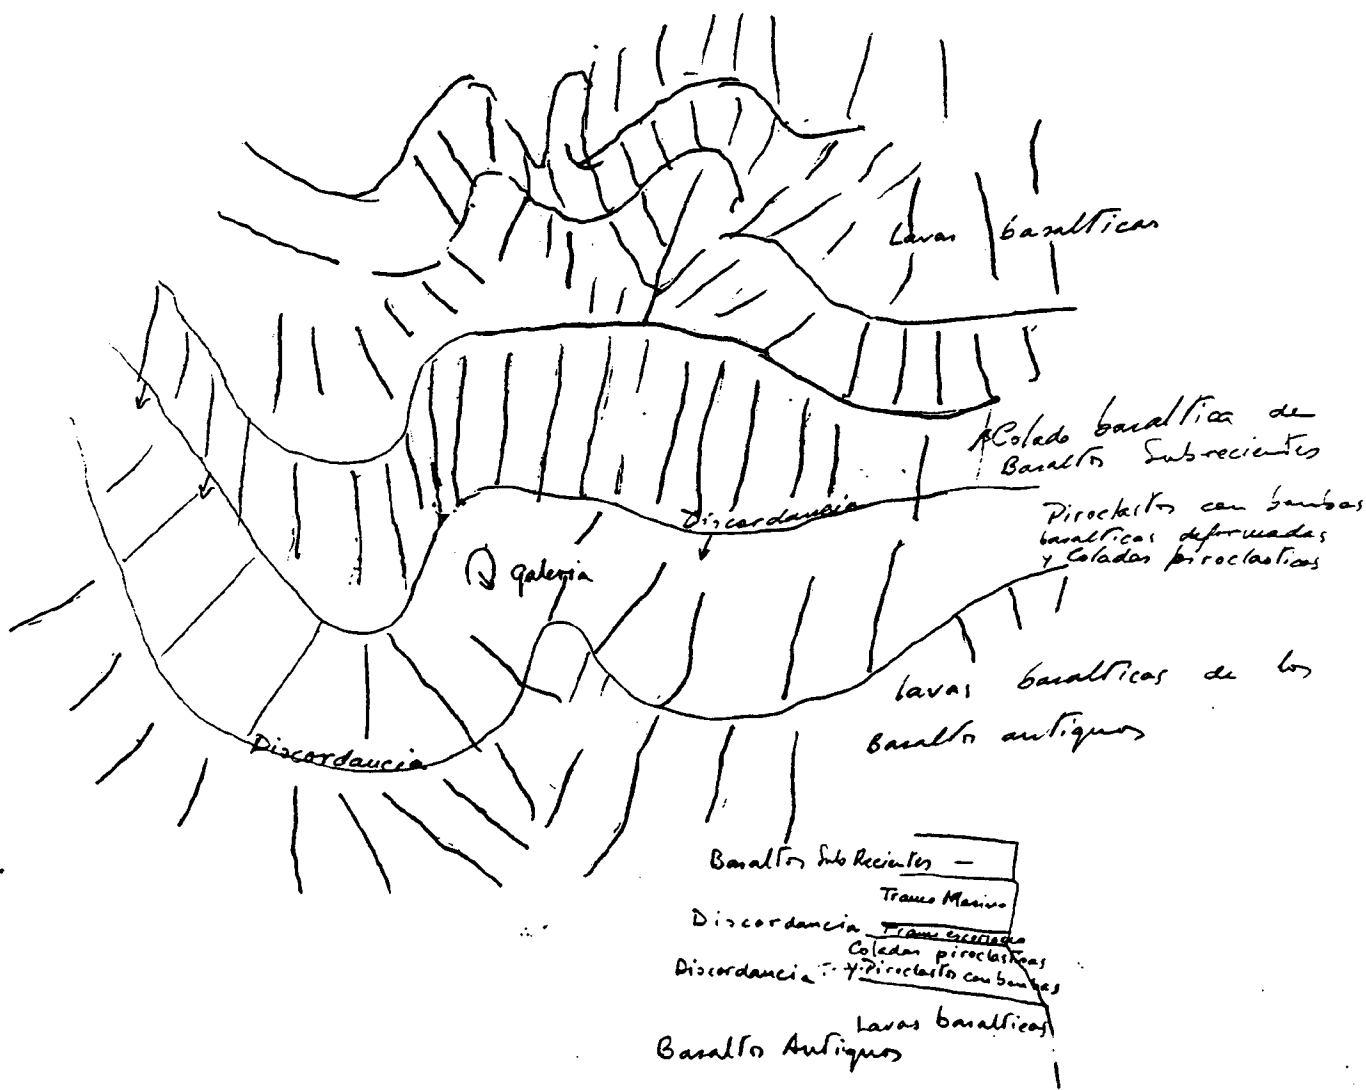 Lavas basalticas
Colada basaltica de
Basaltos Subrecientes
Discordancia
Piroclastos con bombas
basalticas deformadas
y Coladas piroclasticas
galeria
lavas basalticas de los
Basaltos antiguos
Discordancia
Basaltos SubRecientes –
Tramo Masivo
Discordancia Tramo escoriaceo
Coladas piroclasticas
Discordancia - y Piroclastos con bombas
Lavas basalticas
Basaltos Antiguos